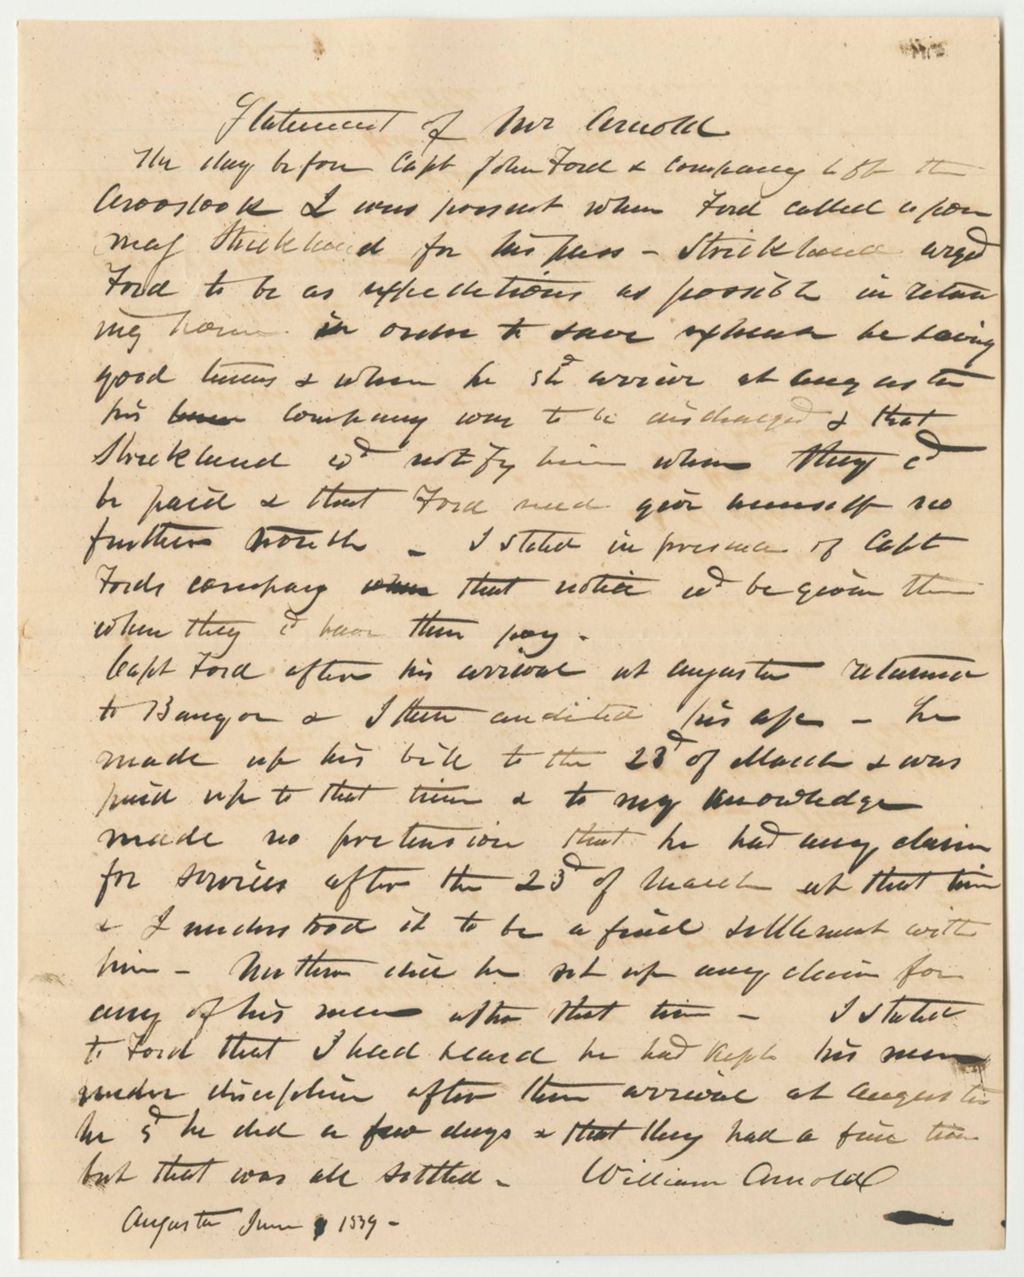 Statement of Mr Arnold
The day before Capt John Ford & company left the
Aroostook I was present when Ford called upon
Maj Strickland for his pass - Strickland urged
Ford to be as expeditious as possible in return
ing home in order to save expense he having
good teams & when he shd arrive at Augusta
his company was to be discharged & that
Strickland wd notify him when they cd
be paid & that Ford need give himself no
further trouble - I stated in presence of Capt
Fords company that notice wd be given them
when they cd have their pay -
Capt Ford after his arrival at Augusta returned
to Bangor & I then audited his a/c - he
made up his bill to the 23d of March & was
paid up to that time & to my knowledge
made no pretension that he had any claim
for services after the 23d of March at that time
& I understood it to be a final settlement with
him - Neither did he set up any claim for
any of his men after that time - I stated
to Ford that I had heard he had kept his men
under discipline after their arrival at Augusta
he sd he did a few days & that they had a fine time
but that was all settled - William Arnold
Augusta June 1839 -